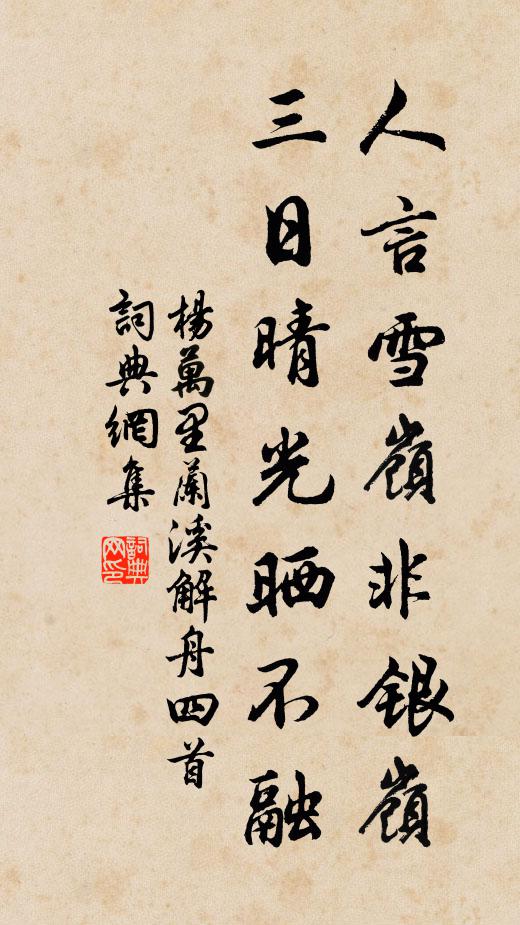 人言雪嶺非銀嶺
三日晴光晒不融
楊萬里蘭溪解舟四首
詞典網集
詞典網印